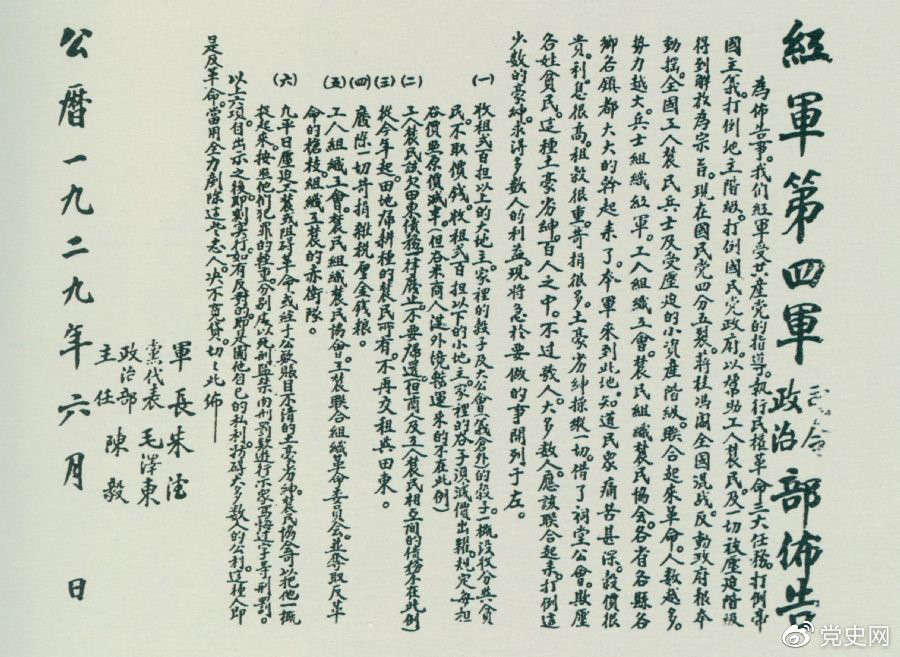 红軍第四軍司令政治部佈告
為佈告事。我们紅軍受共產党的指導。執行民權革命三大任務。打倒帝
國主義。打倒地主階級。打倒國民党政府。以幫助工人農民及一切被壓迫階級
得到解放為宗旨。現在國民党四分五裂。蔣桂馮閻全國混战。反動政府根本
動摇。全國工人農民兵士及受壓迫的小資產階級。联合起來革命。人数越多。
勢力越大。兵士組織紅軍。工人組織工會。農民組織農民協会。各省各縣各
鄉各鎮都大大的幹起来了。本軍来到此地。知道民衆痛苦甚深。穀價很
貴。利息很高。租穀很重。苛捐很多。土豪劣紳操縱一切。借了祠堂公會。欺壓
各姓貧民。這種土豪劣紳。百人之中。不过数人。大多数人應該联合起来。打倒這
少数的豪紳。求得多数人的利益。現將急於要做的事開列于左。
(一) 收租弍百担以上的大地主。家裡的穀子及大公會(義倉外)的穀子一概没收分與貧
民。不取價錢。收租弍百担以下的小地主。家裡的谷子須減價出糶。規定每担
谷價照原價減半。(但谷米商人從外境辦運来的不在此例)
(二) 工人農民該欠田東債務。一律廢止。不要歸還。(但商人及工人農民相互間的債務不在此例)
(三) 從今年起。田地歸耕種的農民所有。不再交租與田東。
(四) 廢除一切苛捐雜税厘金錢粮。
(五) 工人組織工會。農民組織農民協會。工農联合組織革命委員会。並奪取反革
命的槍枝組織工農的赤衛隊。
(六) 凡平日壓迫工農或阻碍革命。或經手公欵賬目不清的土豪劣紳。農民協會可以把他一概
捉起來。按照他们犯罪的輕重。分别處以死刑監禁肉刑罰欵遊行示衆寫悔过字等刑罰。
以上六項自出示之後。即刻實行。如有反對的。即是圖他自己的私利。妨碍大多数人的公利。這種人即
是反革命。當用全力剷除這些惡人。决不寬貸。切切此佈
軍長朱德
黨代表毛澤東
政治部主任陳毅
公曆一九二九年六月 日
党史网